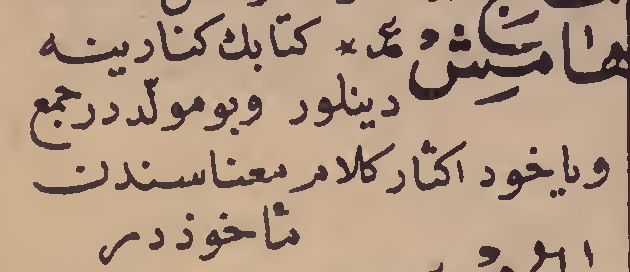 هامِشْ ع * كتابك كنارينه
دينلور وبو مولّددر جمع
ويا خود اكثار كلام معناسندن
مأخوذدر